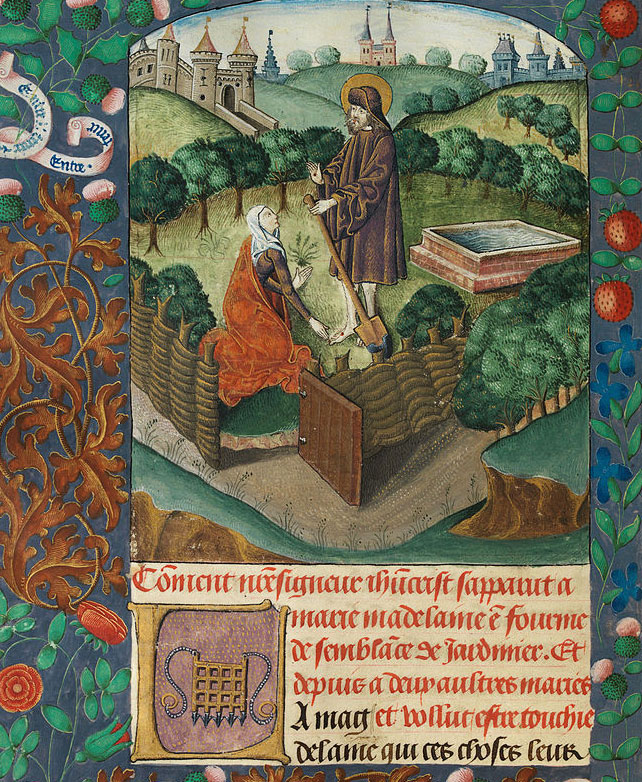 Entre.
Cõment nr̃esigneur ihũcrist sapparut a
marie madelaine ẽ fourme
de semblãce de Jardinier. Et
depuis a deux aultres maries
A mag et vollut estre touchie
delaine qui ces choses leur